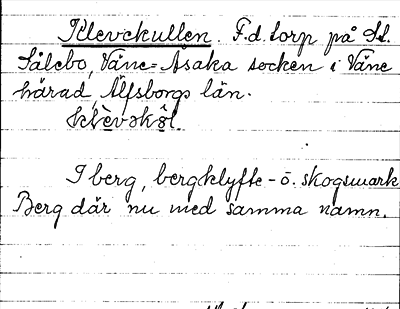 Klevekullen. F.d. torp på St.
Sålebo, Väne-Åsaka socken i Väne
härad, Älfsborgs län.
I berg, bergklyfte- o. skogsmark
Berg där nu med samma namn.